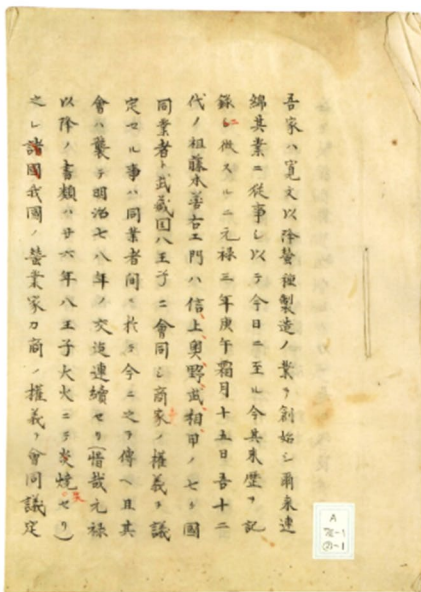 吾家ハ寛文以降蚕種製造ノ業ヲ創始シ爾来連
綿其業ニ従事シ以テ今日ニ至ル今其来歴ヲ記
録ニ徴スルニ元禄三年庚午霜月十五日吾十二
代ノ祖藤本善右エ門ハ信上奥野武相甲ノ七ケ國
同業者ト武蔵国八王子ニ會同シ商家ノ権義ヲ議
定セル事ハ同業者間ニ於テ今ニ之ヲ傳ヘ且其
會ハ襲テ明治七八年ノ交迄連續セリ(惜哉元禄
以降ノ書類ハ廿六年八王子大火ニテ焼セリ)
之レ諸國我國ノ蚕業家カ商ノ権義ヲ會同議定
A